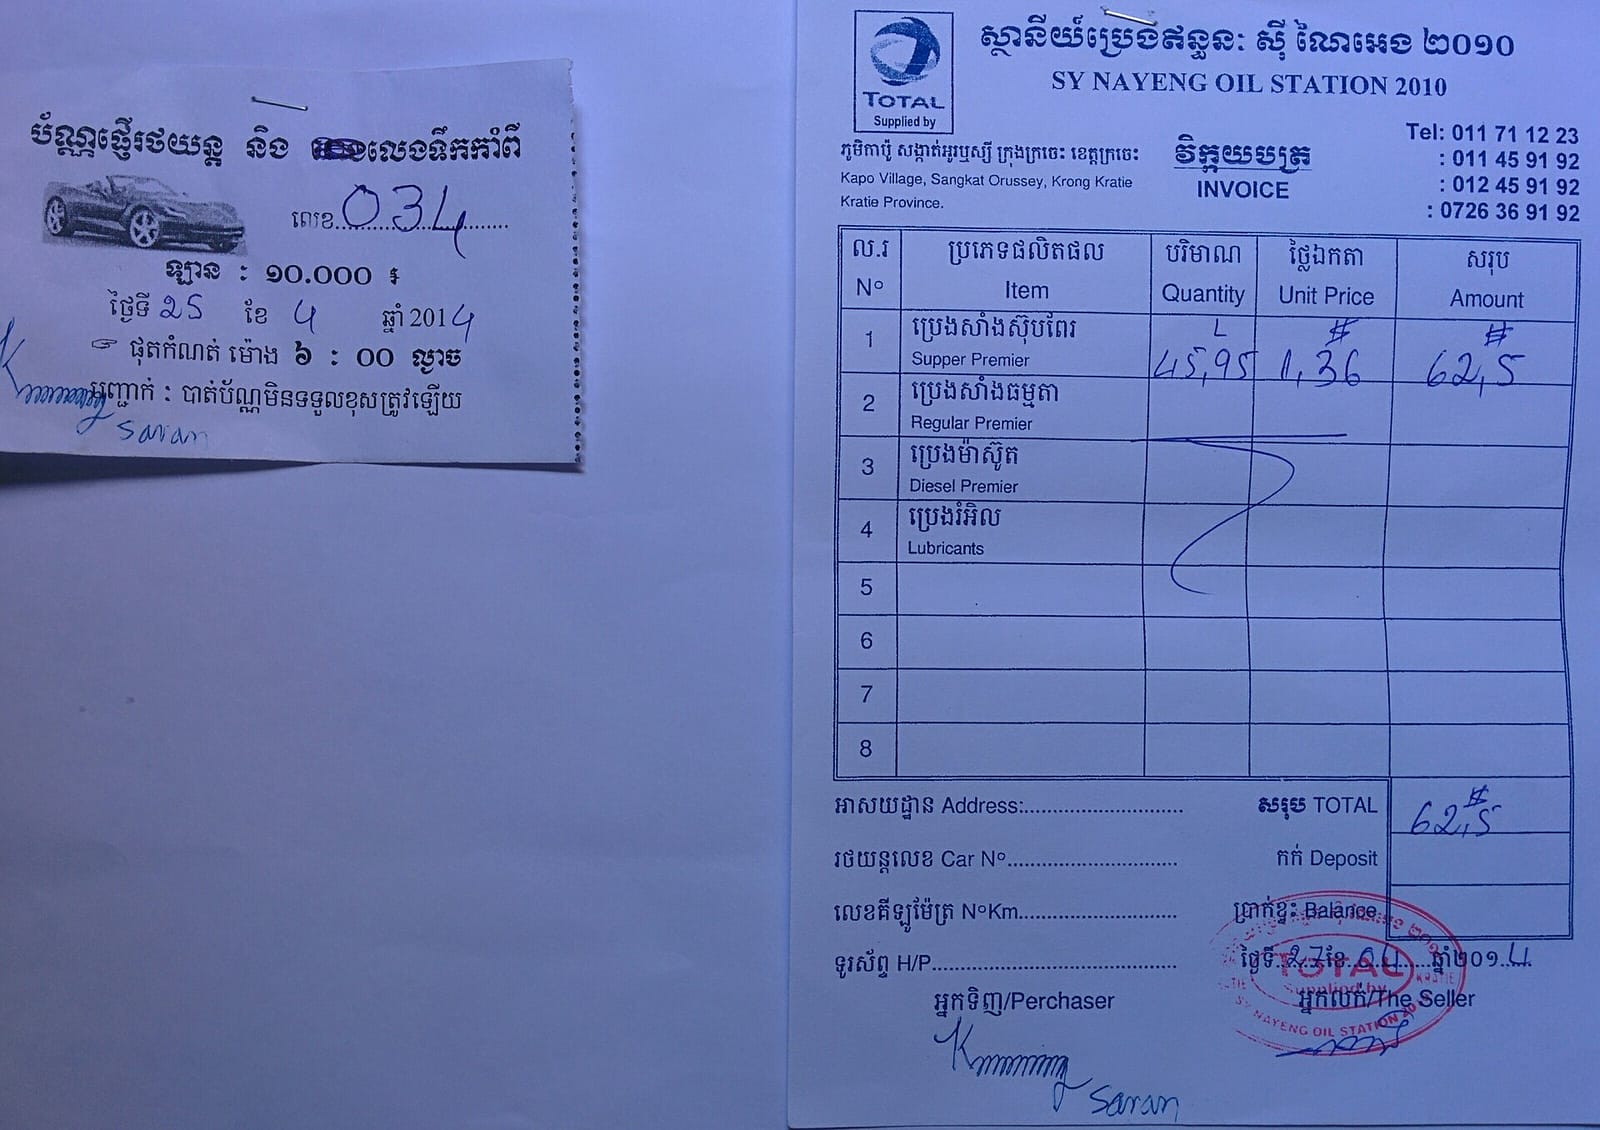 ប័ណ្ណផ្ញើរថយន្ត និង លេងទឹកកាំពី
លេខ 034
ឡាន : ១០.០០០ ៛
ថ្ងៃទី 25 ខែ 4 ឆ្នាំ 2014
ផុតកំណត់ ម៉ោង ៦ : ០០ ល្ងាច
បញ្ជាក់ : បាត់ប័ណ្ណមិនទទួលខុសត្រូវឡើយ
saran
TOTAL
Supplied by
ស្ថានីយ៍ប្រេងឥន្ធនៈ ស៊ី ណៃអេង ២០១០
SY NAYENG OIL STATION 2010
ភូមិកាប៉ូ សង្កាត់អូរឫស្សី ក្រុងក្រចេះ ខេត្តក្រចេះ
Kapo Village, Sangkat Orussey, Krong Kratie
Kratie Province.
វិក្កយបត្រ
INVOICE
Tel: 011 71 12 23
: 011 45 91 92
: 012 45 91 92
: 0726 36 91 92
ល.រ ប្រភេទផលិតផល បរិមាណ ថ្លៃឯកតា សរុប
Nº Item Quantity Unit Price Amount
1 ប្រេងសាំងស៊ុបពែរ L # #
Supper Premier 45,95 1,36 62,5
2 ប្រេងសាំងធម្មតា
Regular Premier
3 ប្រេងម៉ាស៊ូត
Diesel Premier
4 ប្រេងរំអិល
Lubricants
5
6
7
8
អាសយដ្ឋាន Address: សរុប TOTAL 62,5 #
រថយន្តលេខ Car Nº កក់ Deposit
លេខគីឡូម៉ែត្រ NºKm ប្រាក់ខ្វះ Balance
ទូរស័ព្ទ H/P ថ្ងៃទី 27 ខែ 04 ឆ្នាំ២០១4
អ្នកទិញ/Perchaser អ្នកលក់/The Seller
TOTAL
Supplied by
SY NAYENG OIL STATION 2010
KRATIE
saran